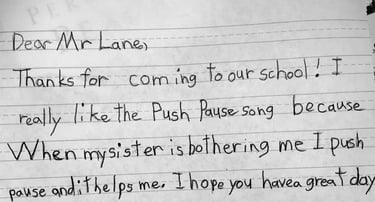 Dear Mr Lane,
Thanks for coming to our school! I
really like the Push Pause song because
When my sister is bothering me I push
pause and it helps me. I hope you have a great day